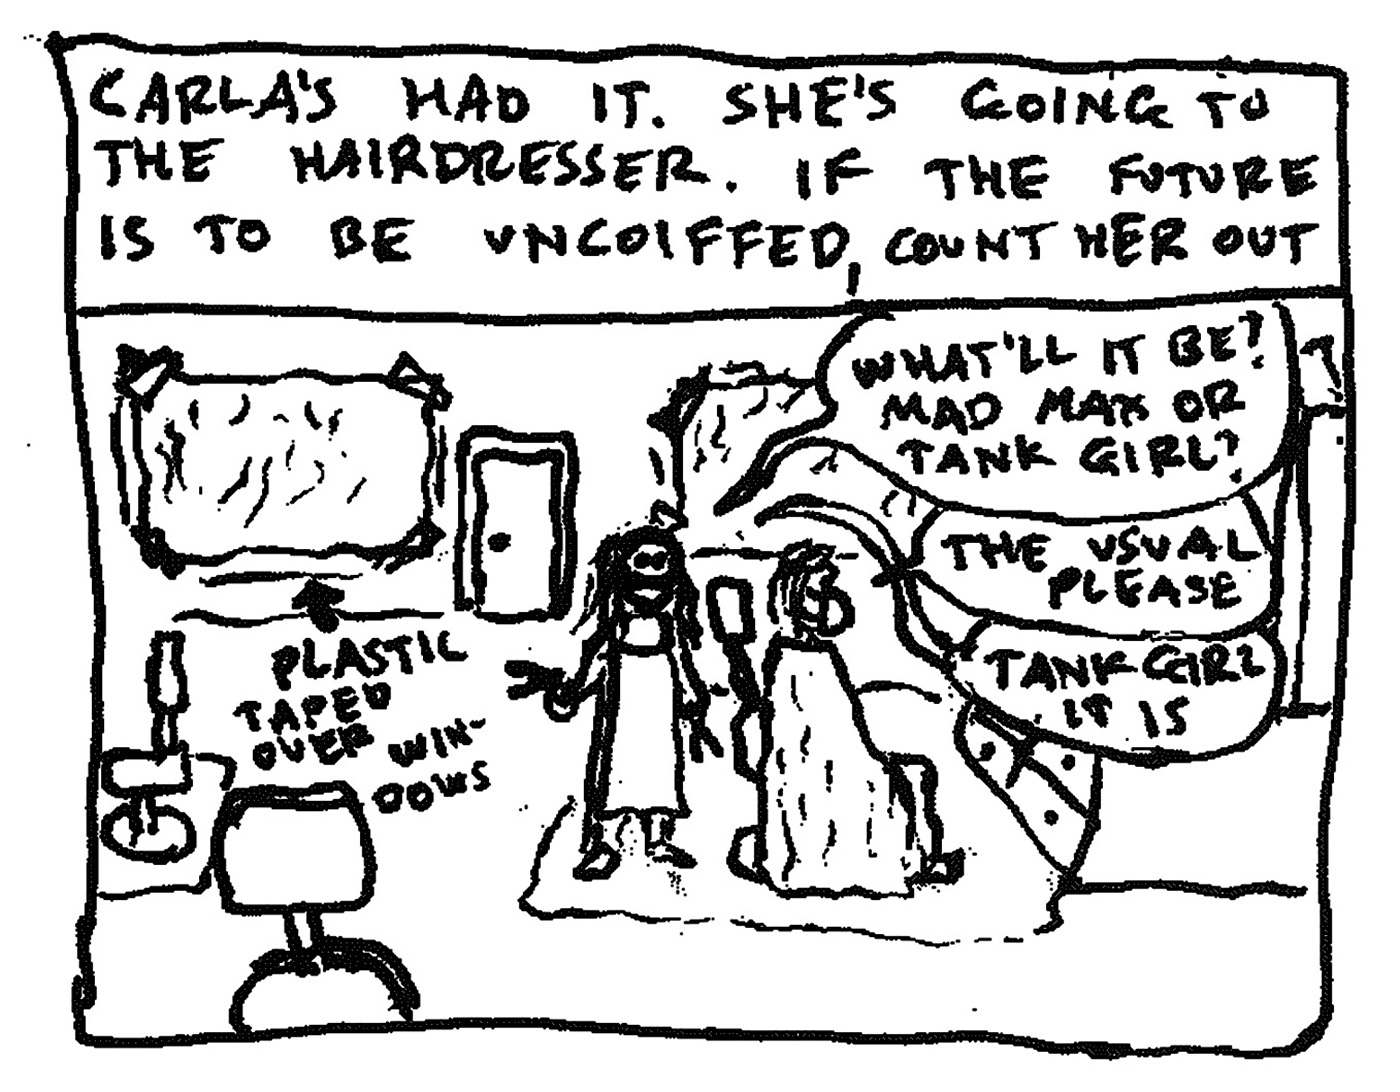 CARLA'S HAD IT. SHE'S GOING TO
THE HAIRDRESSER. IF THE FUTURE
IS TO BE UNCOIFFED, COUNT HER OUT
WHAT'LL IT BE?
MAD MAX OR
TANK GIRL?
THE USUAL
PLEASE
TANK GIRL
IT IS
PLASTIC
TAPED
OVER WIN-
DOWS